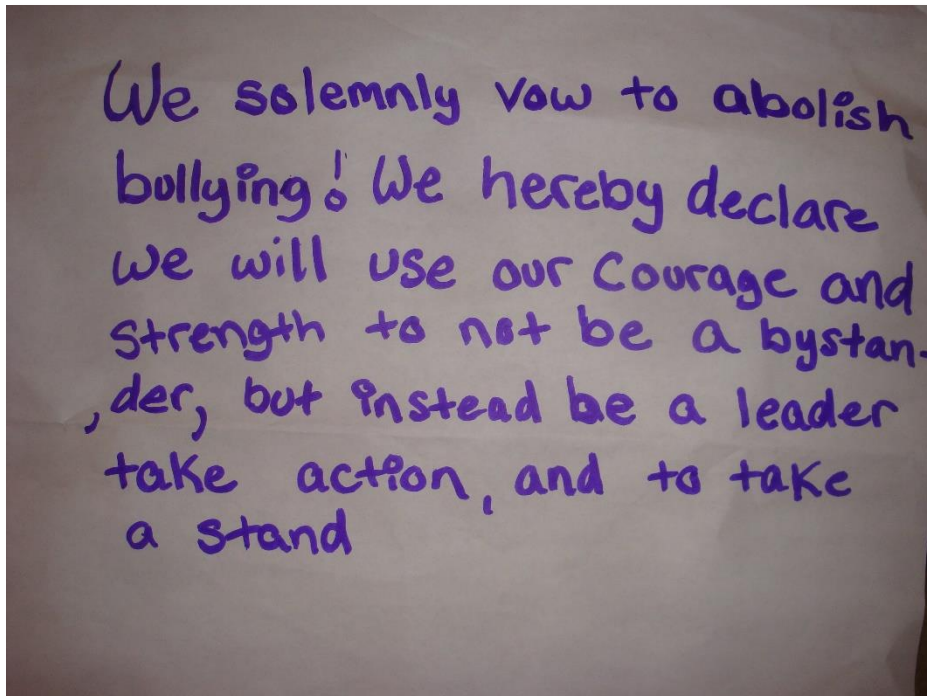 We solemnly vow to abolish
bullying! We hereby declare
we will use our Courage and
strength to not be a bystan-
,der, but instead be a leader
take action, and to take
a stand